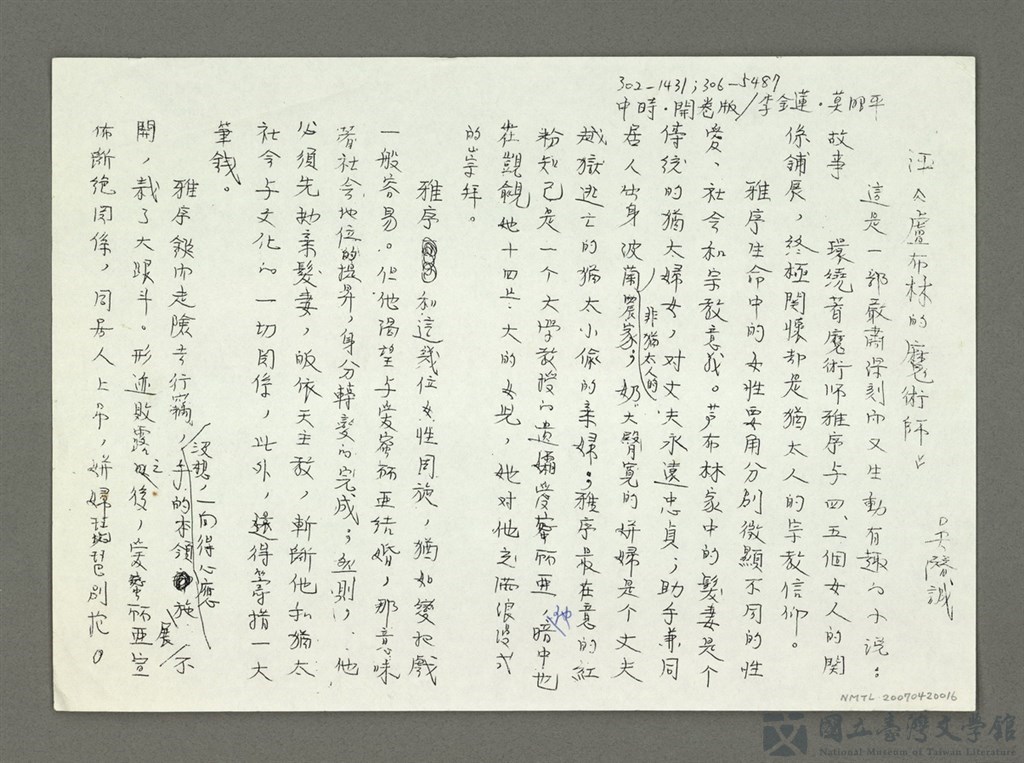 302-1431；306-5487
中時·開卷版/李金蓮·莫昭平
評《盧布林的魔術師》
吳潛誠
這是一部嚴肅深刻而又生動有趣的小說；
故事環繞著魔術師雅序与四、五個女人的関
係鋪展，終極関懷却是猶太人的宗教信仰。
雅序生命中的女性要角分別徵顯不同的性
愛、社会和宗教意義。芦布林家中的髮妻是个
傳統的猶太婦女，对丈夫永遠忠貞；助手兼同
居人出身波蘭農家；奶大臀寬的姘婦是个丈夫
非猶太人的
越獄逃亡的猶太小偷的棄婦；雅序最在意的紅
粉知己是一个大学教授的遺孀愛蜜莉亞，她暗中也
在覬覦她十四歲大的女兒，她对他之浪漫式
的崇拜。
雅序和這幾位女性周旋，猶如變把戲
一般容易。但他渴望与愛蜜莉亞結婚，那意味
著社会地位的提昇，身分轉變的完成；然則，他
必須先拋棄髮妻，皈依天主教，斬斷他和猶太
社会与文化的一切関係，此外，還得籌措一大
筆錢。
雅序鋌而走險去行竊，沒想，一向得心應
手的本領施展不
開，栽了大跟斗。形迹敗露之後，愛蜜莉亞宣
佈斷絕関係，同居人上吊，姘婦琵琶別抱。
NMTL 20070420016
國立臺灣文學館
National Museum of Taiwan Literature